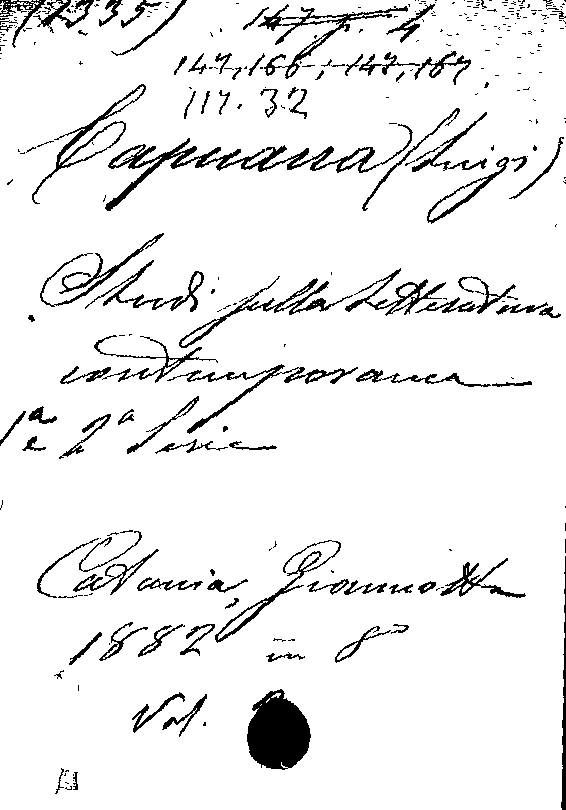 (2335) 147. p. 4
147,166; 147,167
117. 32
Capuana (Luigi)
Studi sulla letteratura
contemporanea
1ª e 2ª Serie
Catania, Giannotta
1882 in 8º
Vol.